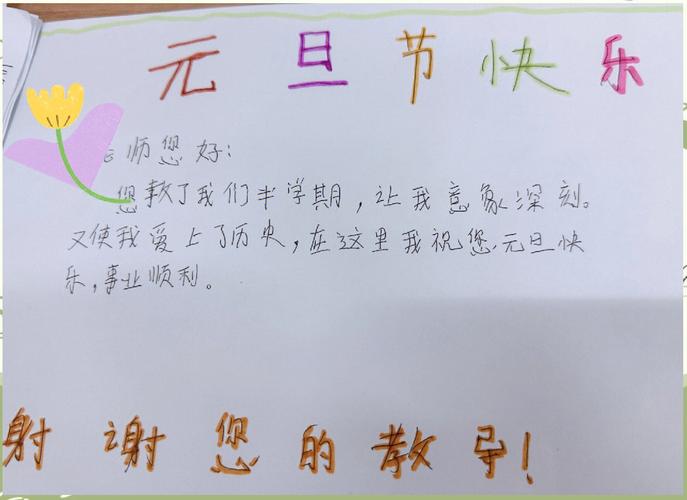 元旦节快乐
师您好：
您教了我们半学期，让我意象深刻。
又使我爱上了历史，在这里我祝您元旦快
乐，事业顺利。
谢谢您的教导！